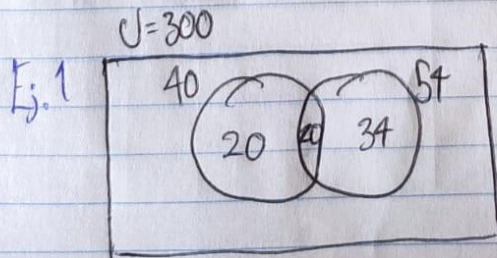 U=300
Ej.1
40 54
20 20 34